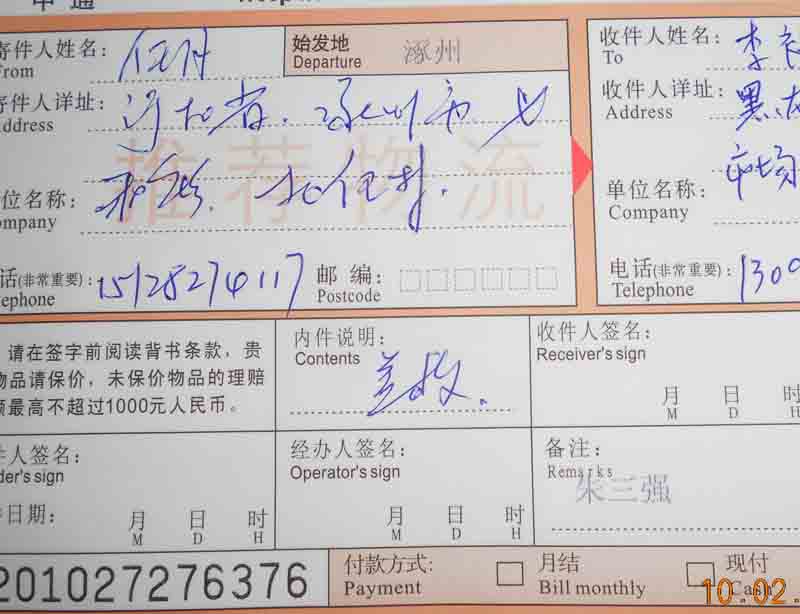 寄件人姓名:
From
始发地
Departure
涿州
收件人姓名:
To
李
寄件人详址:
Address
河北省.涿州市
收件人详址:
Address
黑龙
推荐物流
市场
单位名称:
Company
单位名称:
Company
电话(非常重要):
Telephone
15128274117
邮 编:
Postcode
电话(非常重要):
Telephone
1309
请在签字前阅读背书条款,贵
物品请保价,未保价物品的理赔
额最高不超过1000元人民币。
内件说明:
Contents
收件人签名:
Receiver's sign
月 日 时
M D H
件人签名:
der's sign
日期:
月 日 时
M D H
经办人签名:
Operator's sign
月 日 时
M D H
备注:
Remarks
朱三强
201027276376
付款方式:
Payment
月结
Bill monthly
现付
Cash
10.02.